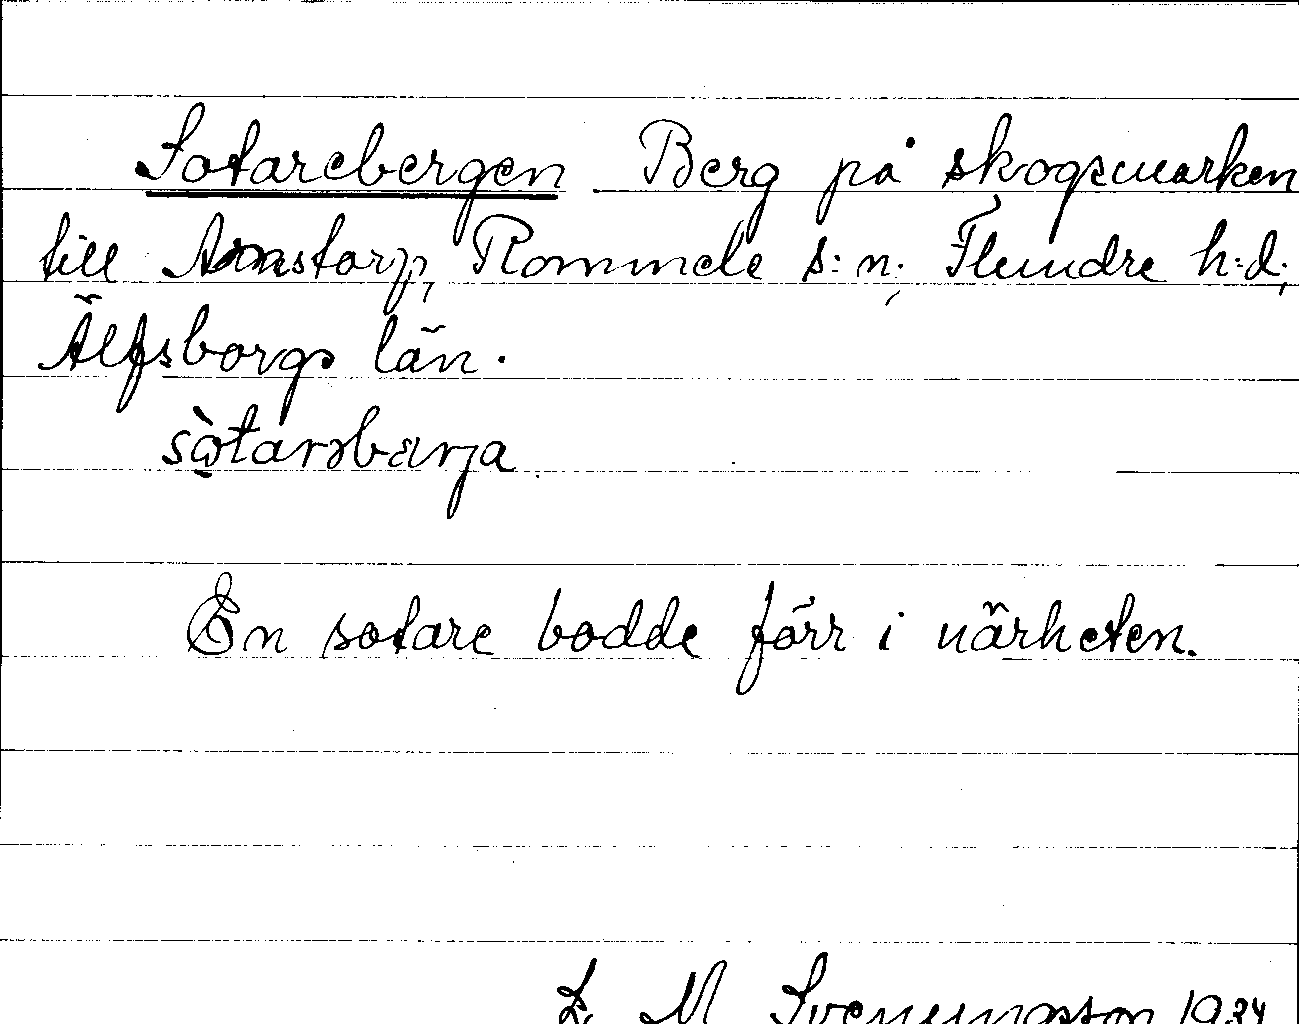 Sotarebergen Berg på skogsmarken
till Arnstorp, Rommele s:n; Flundre h:d;
Älfsborgs län.
sòtarəbærja
En sotare bodde förr i närheten.
L. M. Svenungsson 1934